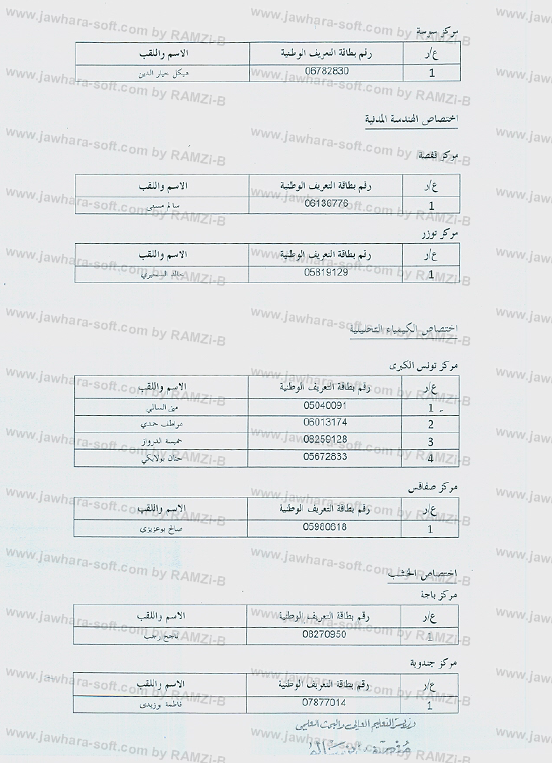 مركز سوسة
ع/ر رقم بطاقة التعريف الوطنية الاسم واللقب
1 06782830 هيكل خيار الدين
اختصاص الهندسة المدنية
مركز قفصة
ع/ر رقم بطاقة التعريف الوطنية الاسم واللقب
1 06136776 سالم
مركز توزر
ع/ر رقم بطاقة التعريف الوطنية الاسم واللقب
1 05819129 خالد
اختصاص الكيمياء التحليلية
مركز تونس الكبرى
ع/ر رقم بطاقة التعريف الوطنية الاسم واللقب
1 05040091
2 06013174 عواطف حمدي
3 08259128 خميسة الدرواز
4 05672833 حنان بولابكي
مركز صفاقس
ع/ر رقم بطاقة التعريف الوطنية الاسم واللقب
1 05980618 صالح بوعزيزي
اختصاص الخشب
مركز باجة
ع/ر رقم بطاقة التعريف الوطنية الاسم واللقب
1 08270950 ناجح رجب
مركز جندوبة
ع/ر رقم بطاقة التعريف الوطنية الاسم واللقب
1 07877014 فاطمة بوزيدي
وزارة التعليم العالي والبحث العلمي
www.jawhara-soft.com by RAMZi-B